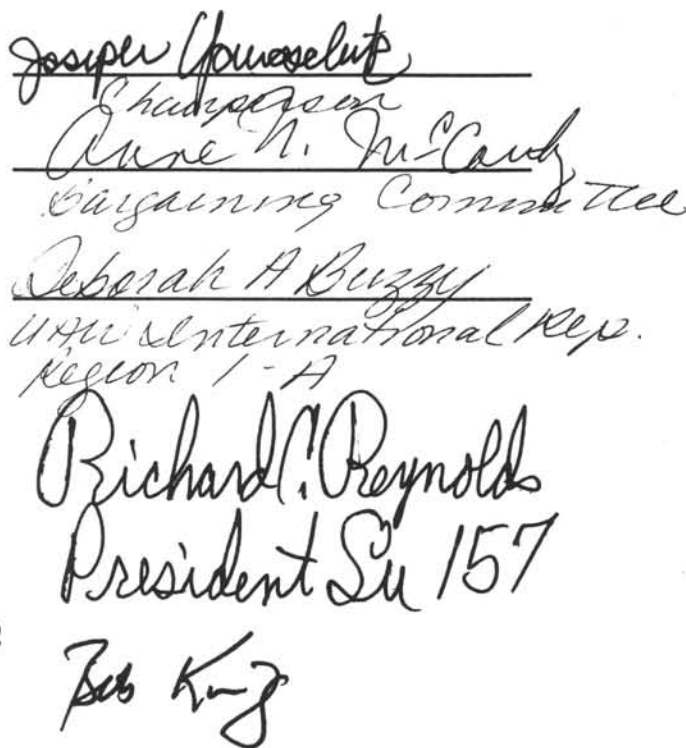 Chairperson
Anne N. McCauly
Bargaining Committee
Deborah A Buzzy
UAW International Rep.
Region 1-A
Richard C. Reynolds
President Lu 157
Bob King